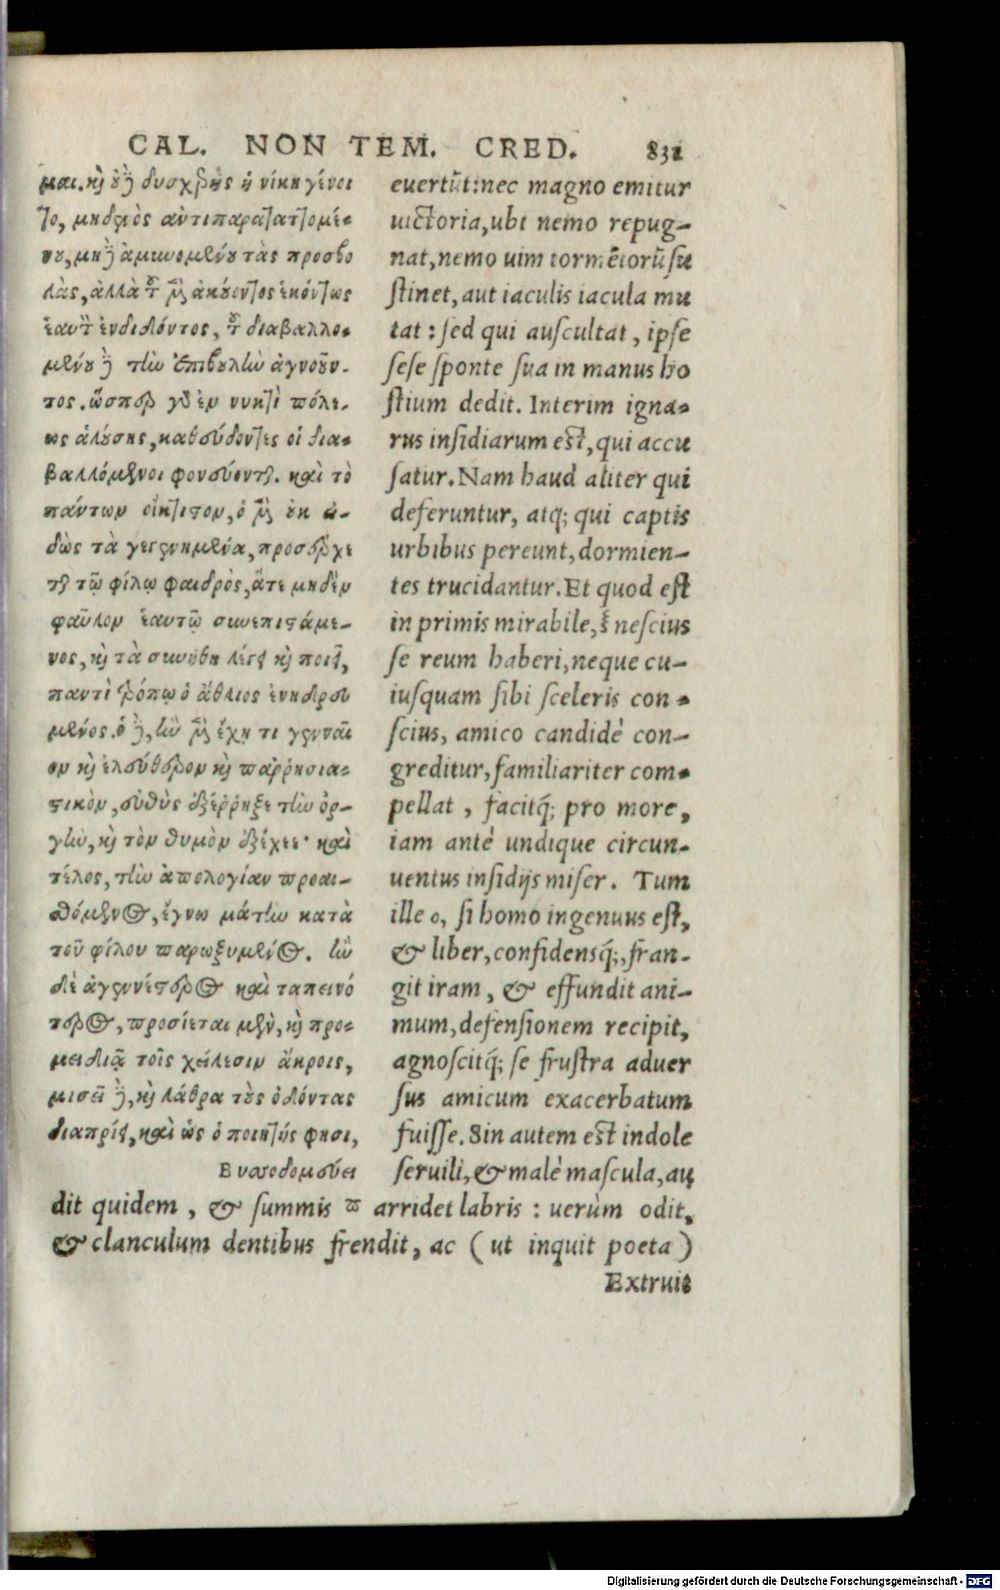 CAL. NON TEM. CRED. 831
μαι. καὶ οὐ δὲ δυσχερὴς ἡ νίκη γίνοι
το, μηδενὸς ἀντιπαραταττομέ-
νου, μὴ δὲ ἀμυνομένου τὰς προσβο
λὰς, ἀλλὰ τοῦ μὲν ἀκούοντος ἑκόντως
ἑαυτὸν ἐνδιδόντος, τοῦ διαβαλλο-
μένου δὲ τὴν ἐπιβουλὴν ἀγνοοῦν-
τος. ὥσπερ γὰρ ἐν νυκτὶ πόλε-
ως ἁλούσης, καθεύδοντες οἱ δια-
βαλλόμενοι φονεύονται. καὶ τὸ
πάντων οἴκτιστον, ὁ μὲν οὐκ εἰ-
δὼς τὰ γεγενημένα, προσέρχε
ται τῷ φίλῳ φαιδρὸς, ἅτε μηδὲν
φαῦλον ἑαυτῷ συνεπιστάμε-
νος, καὶ τὰ συνήθη λέγει καὶ ποιεῖ,
παντὶ τρόπῳ ὁ ἄθλιος ἐνηδρευ
μένος. ὁ δὲ, ἢν μὲν ἔχῃ τι γενναῖ
ον καὶ ἐλεύθερον καὶ παῤῥησια-
στικὸν, εὐθὺς ἐξέῤῥηξε τὴν ὀρ-
γὴν, καὶ τὸν θυμὸν ἐξέχεε· καὶ
τέλος, τὴν ἀπολογίαν προσι-
έμενος, ἔγνω μάτην κατὰ
τοῦ φίλου παρωξυμένος. ἢν
δὲ ἀγεννέστερος καὶ ταπεινό
τερος, προσίεται μὲν, καὶ προσ-
μειδιᾷ τοῖς χείλεσιν ἄκροις,
μισεῖ δὲ, καὶ λάθρα τοὺς ὀδόντας
διαπρίει, καὶ ὡς ὁ ποιητής φησι,
Βυσσοδομεύει
euertũt: nec magno emitur
uictoria, ubi nemo repug-
nat, nemo uim tormẽtorũ su
stinet, aut iaculis iacula mu
tat: sed qui auscultat, ipse
sese sponte sua in manus ho
stium dedit. Interim igna-
rus insidiarum est, qui accu
satur. Nam haud aliter qui
deferuntur, atq; qui captis
urbibus pereunt, dormien-
tes trucidantur. Et quod est
in primis mirabile, is nescius
se reum haberi, neque cu-
iusquam sibi sceleris con-
scius, amico candidè con-
greditur, familiariter com-
pellat, facitq́; pro more,
iam antè undique circun-
uentus insidijs miser. Tum
ille o, si homo ingenuus est,
& liber, confidensq́;, fran-
git iram, & effundit ani-
mum, defensionem recipit,
agnoscitq́; se frustra aduer
sus amicum exacerbatum
fuisse. Sin autem est indole
seruili, & malè mascula, au
dit quidem, & summis arridet labris: uerùm odit,
& clanculum dentibus frendit, ac (ut inquit poeta)
Extruit
Digitalisierung gefördert durch die Deutsche Forschungsgemeinschaft - DFG